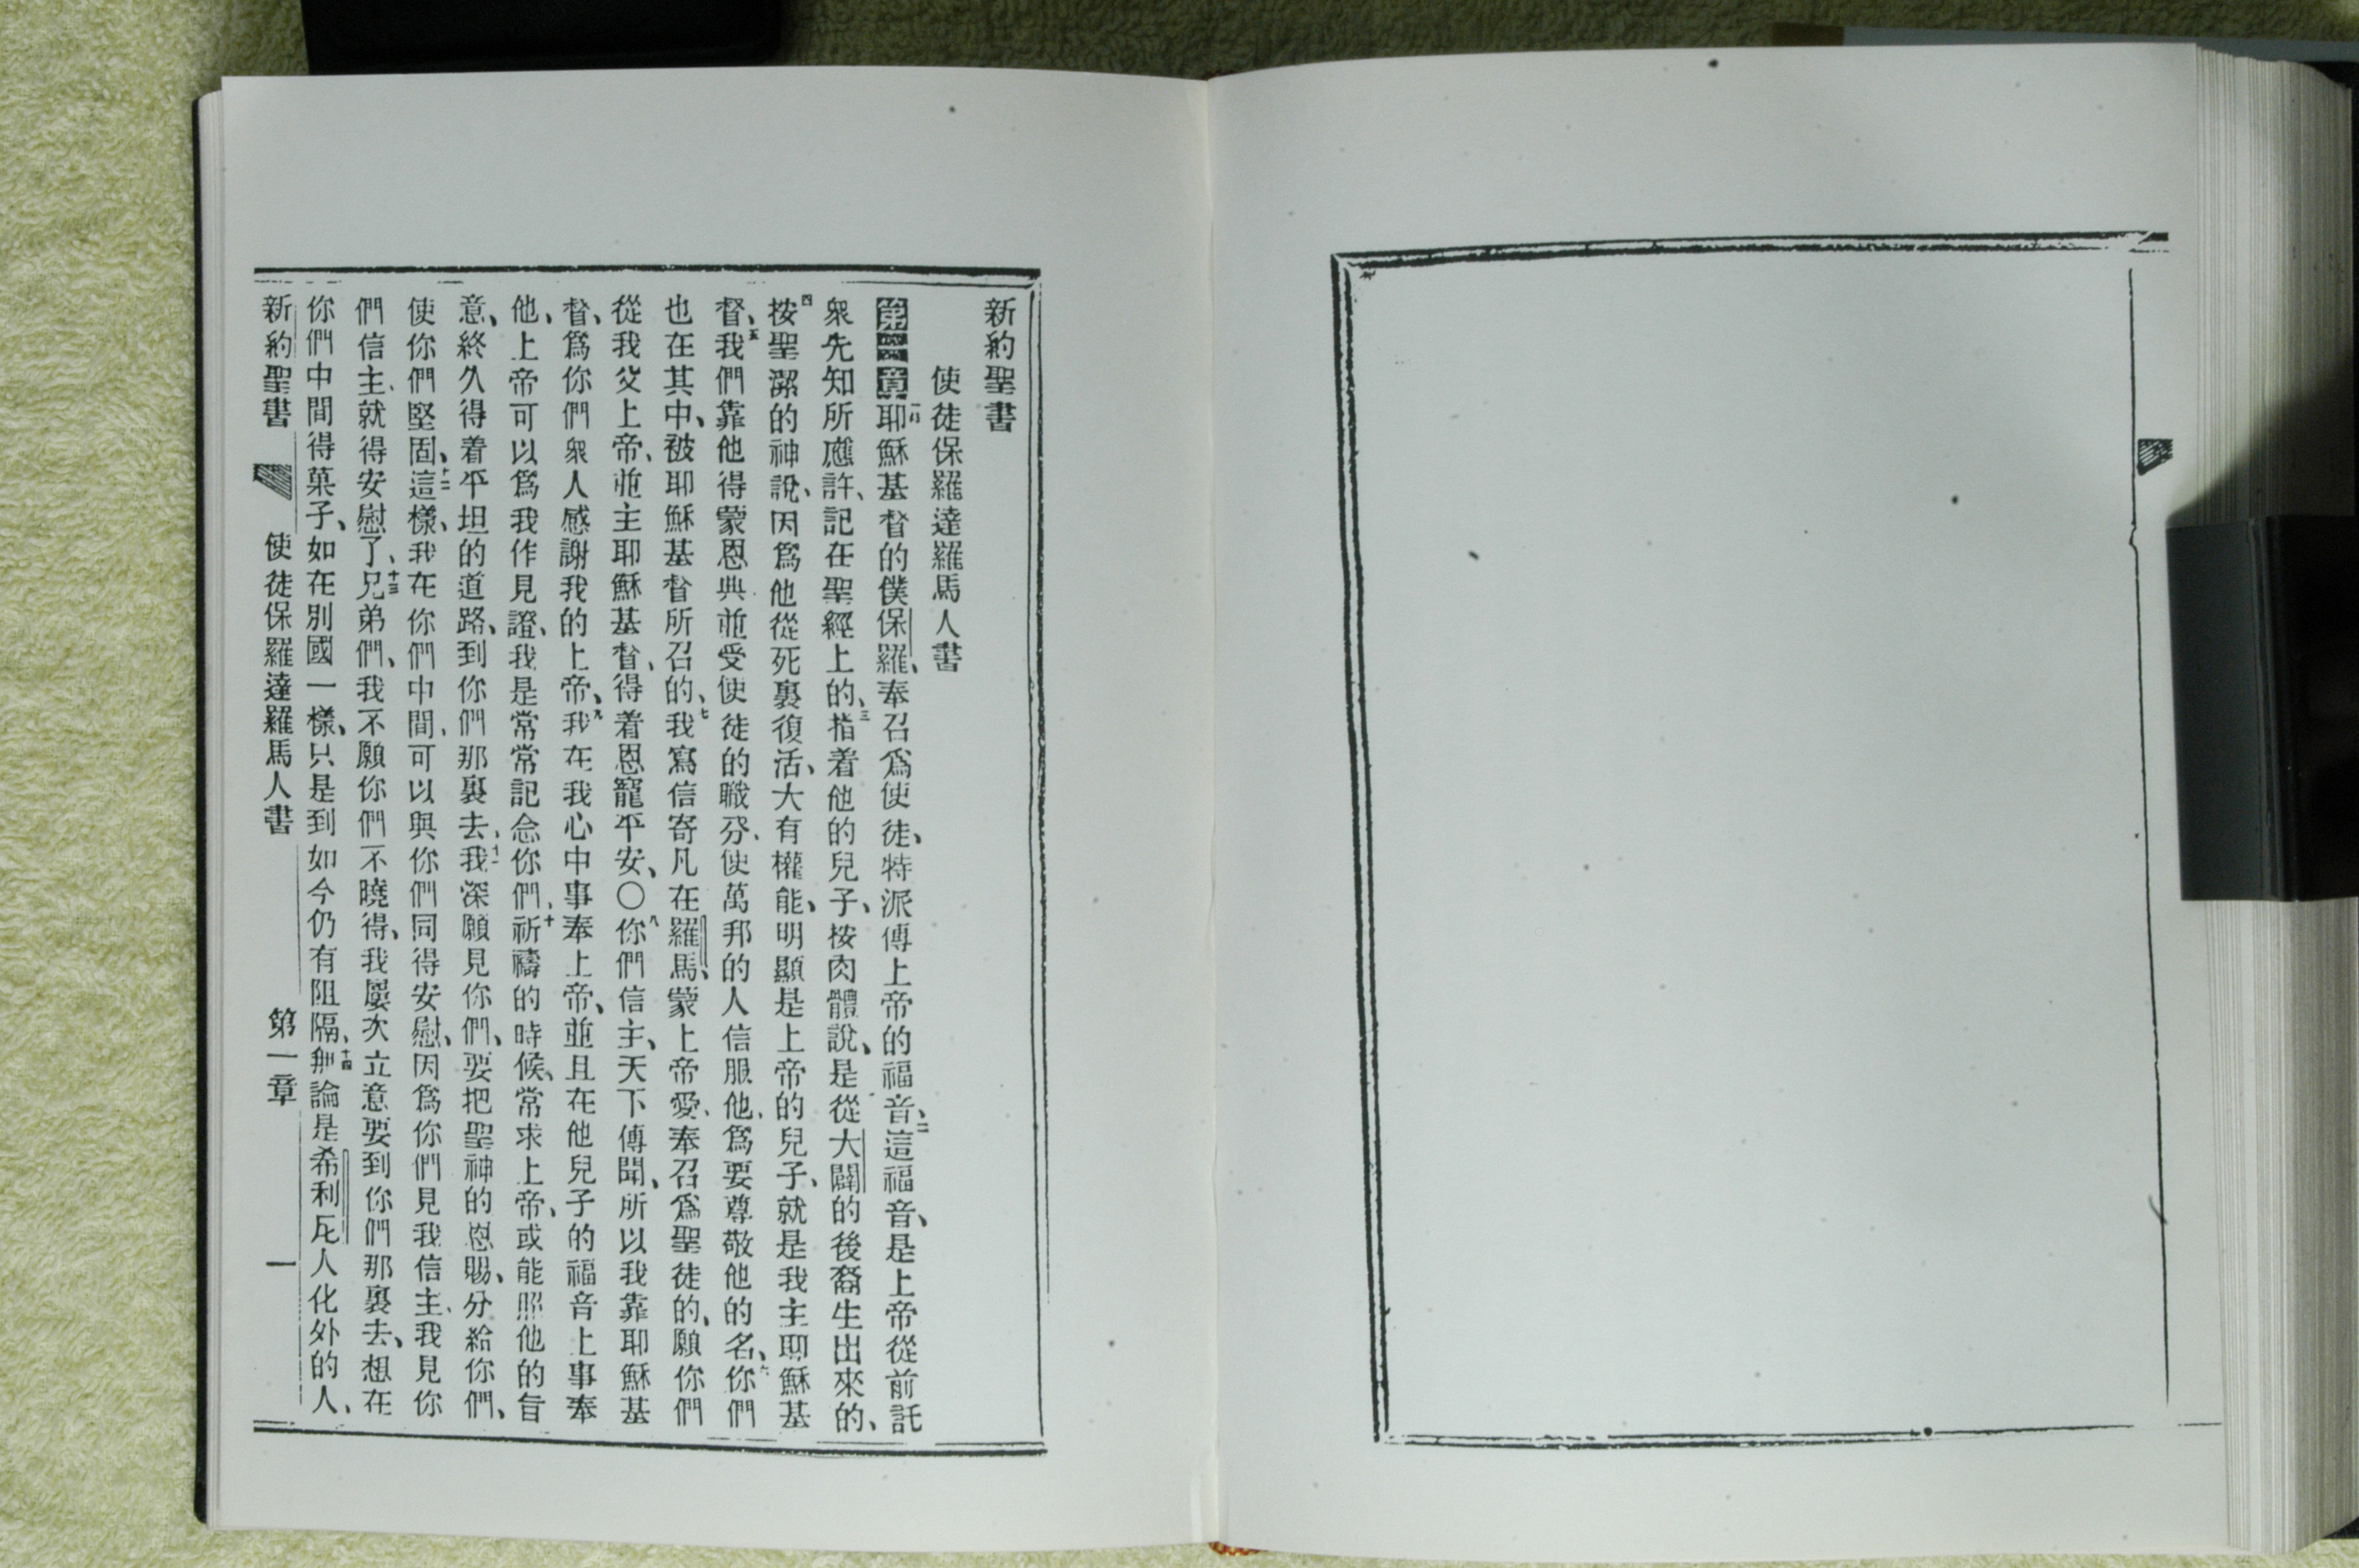 新約聖書
使徒保羅達羅馬人書
第一章 一耶穌基督的僕保羅、奉召爲使徒、特派傳上帝的福音、二這福音、是上帝從前託
衆先知所應許、記在聖經上的、三指着他的兒子、按肉體說、是從大闢的後裔生出來的、
四按聖潔的神說、因爲他從死裏復活、大有權能、明顯是上帝的兒子、就是我主耶穌基
督、五我們靠他得蒙恩典、並受使徒的職分、使萬邦的人信服他、爲要尊敬他的名、六你們
也在其中、被耶穌基督所召的、七我寫信寄凡在羅馬、蒙上帝愛、奉召爲聖徒的、願你們
從我父上帝、並主耶穌基督、得着恩寵平安、〇八你們信主、天下傳聞、所以我靠耶穌基
督、爲你們衆人感謝我的上帝、九我在我心中事奉上帝、並且在他兒子的福音上事奉
他、上帝可以爲我作見證、我是常常記念你們、十祈禱的時候、常求上帝、或能照他的旨
意、終久得着平坦的道路、到你們那裏去、十一我深願見你們、要把聖神的恩賜、分給你們、
使你們堅固、十二這樣、我在你們中間、可以與你們同得安慰、因爲你們見我信主、我見你
們信主、就得安慰了、十三兄弟們、我不願你們不曉得、我屢次立意要到你們那裏去、想在
你們中間得菓子、如在別國一樣、只是到如今仍有阻隔、十四無論是希利尼人化外的人、
新約聖書 使徒保羅達羅馬人書 第一章 一